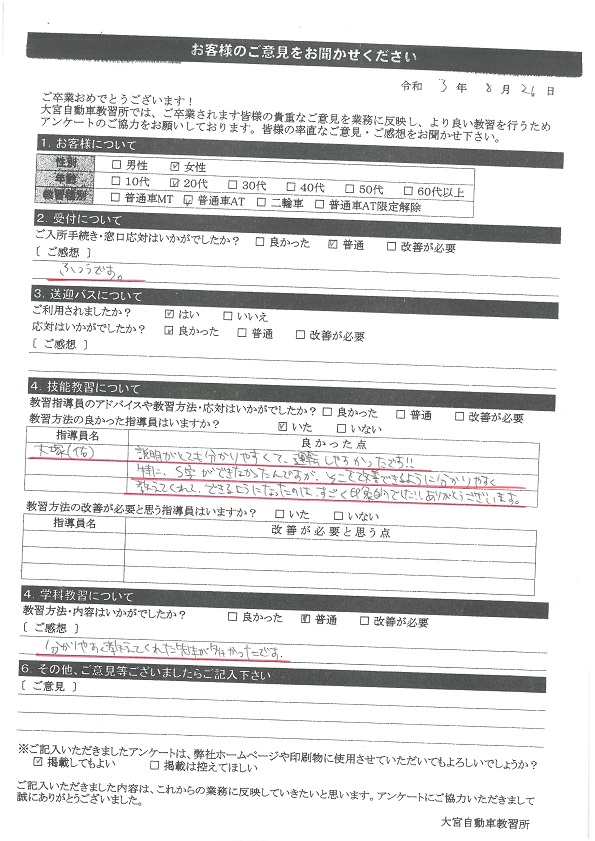 お客様のご意見をお聞かせください
令和 3 年 8 月 26 日
ご卒業おめでとうございます！
大宮自動車教習所では、ご卒業されます皆様の貴重なご意見を業務に反映し、より良い教習を行うため
アンケートのご協力をお願いしております。皆様の率直なご意見・ご感想をお聞かせ下さい。
1. お客様について
性別 □ 男性 ☑ 女性
年齢 □ 10代 ☑ 20代 □ 30代 □ 40代 □ 50代 □ 60代以上
教習種別 □ 普通車MT ☑ 普通車AT □ 二輪車 □ 普通車AT限定解除
2. 受付について
ご入所手続き・窓口応対はいかがでしたか？ □ 良かった ☑ 普通 □ 改善が必要
[ ご感想 ]
ふつうです。
3. 送迎バスについて
ご利用されましたか？ ☑ はい □ いいえ
応対はいかがでしたか？ ☑ 良かった □ 普通 □ 改善が必要
[ ご感想 ]
4. 技能教習について
教習指導員のアドバイスや教習方法・応対はいかがでしたか？ □ 良かった □ 普通 □ 改善が必要
教習方法の良かった指導員はいますか？ ☑ いた □ いない
指導員名 良かった点
大塚(佑) 説明がとても分かりやすくて、運転しやすかったです!!
特に、S字ができなかったんですが、そこを改善できるように分かりやすく
教えてくれて、できるようになったのは、すごく印象的でした!ありがとうございます。
教習方法の改善が必要と思う指導員はいますか？ □ いた □ いない
指導員名 改善が必要と思う点
4. 学科教習について
教習方法・内容はいかがでしたか？ □ 良かった ☑ 普通 □ 改善が必要
[ ご感想 ]
分かりやすく教えてくれた先生が多かったです.
6. その他、ご意見等ございましたらご記入下さい
[ ご意見 ]
※ご記入いただきましたアンケートは、弊社ホームページや印刷物に使用させていただいてもよろしいでしょうか？
☑ 掲載してもよい □ 掲載は控えてほしい
ご記入いただきました内容は、これからの業務に反映していきたいと思います。アンケートにご協力いただきまして
誠にありがとうございました。
大宮自動車教習所